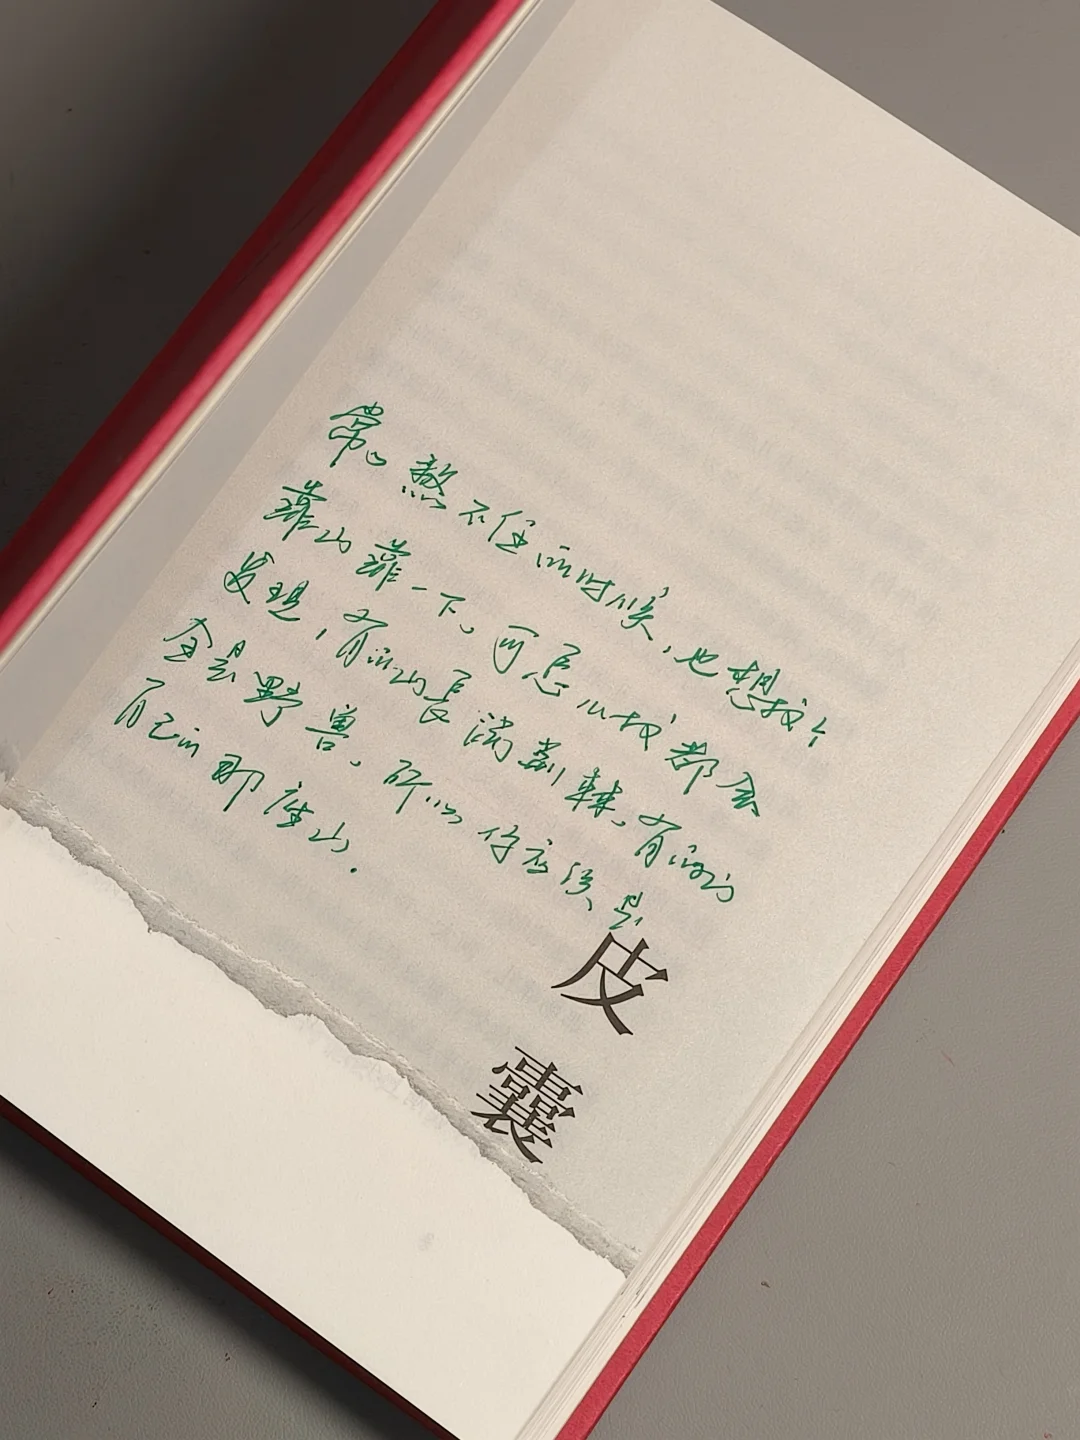 常常熬不住的时候，也想找个
靠山靠一下。可怎么找都会
发现，有的山长满荆棘。有的山
全是野兽。所以你应该是
自己的那座山.
皮
囊